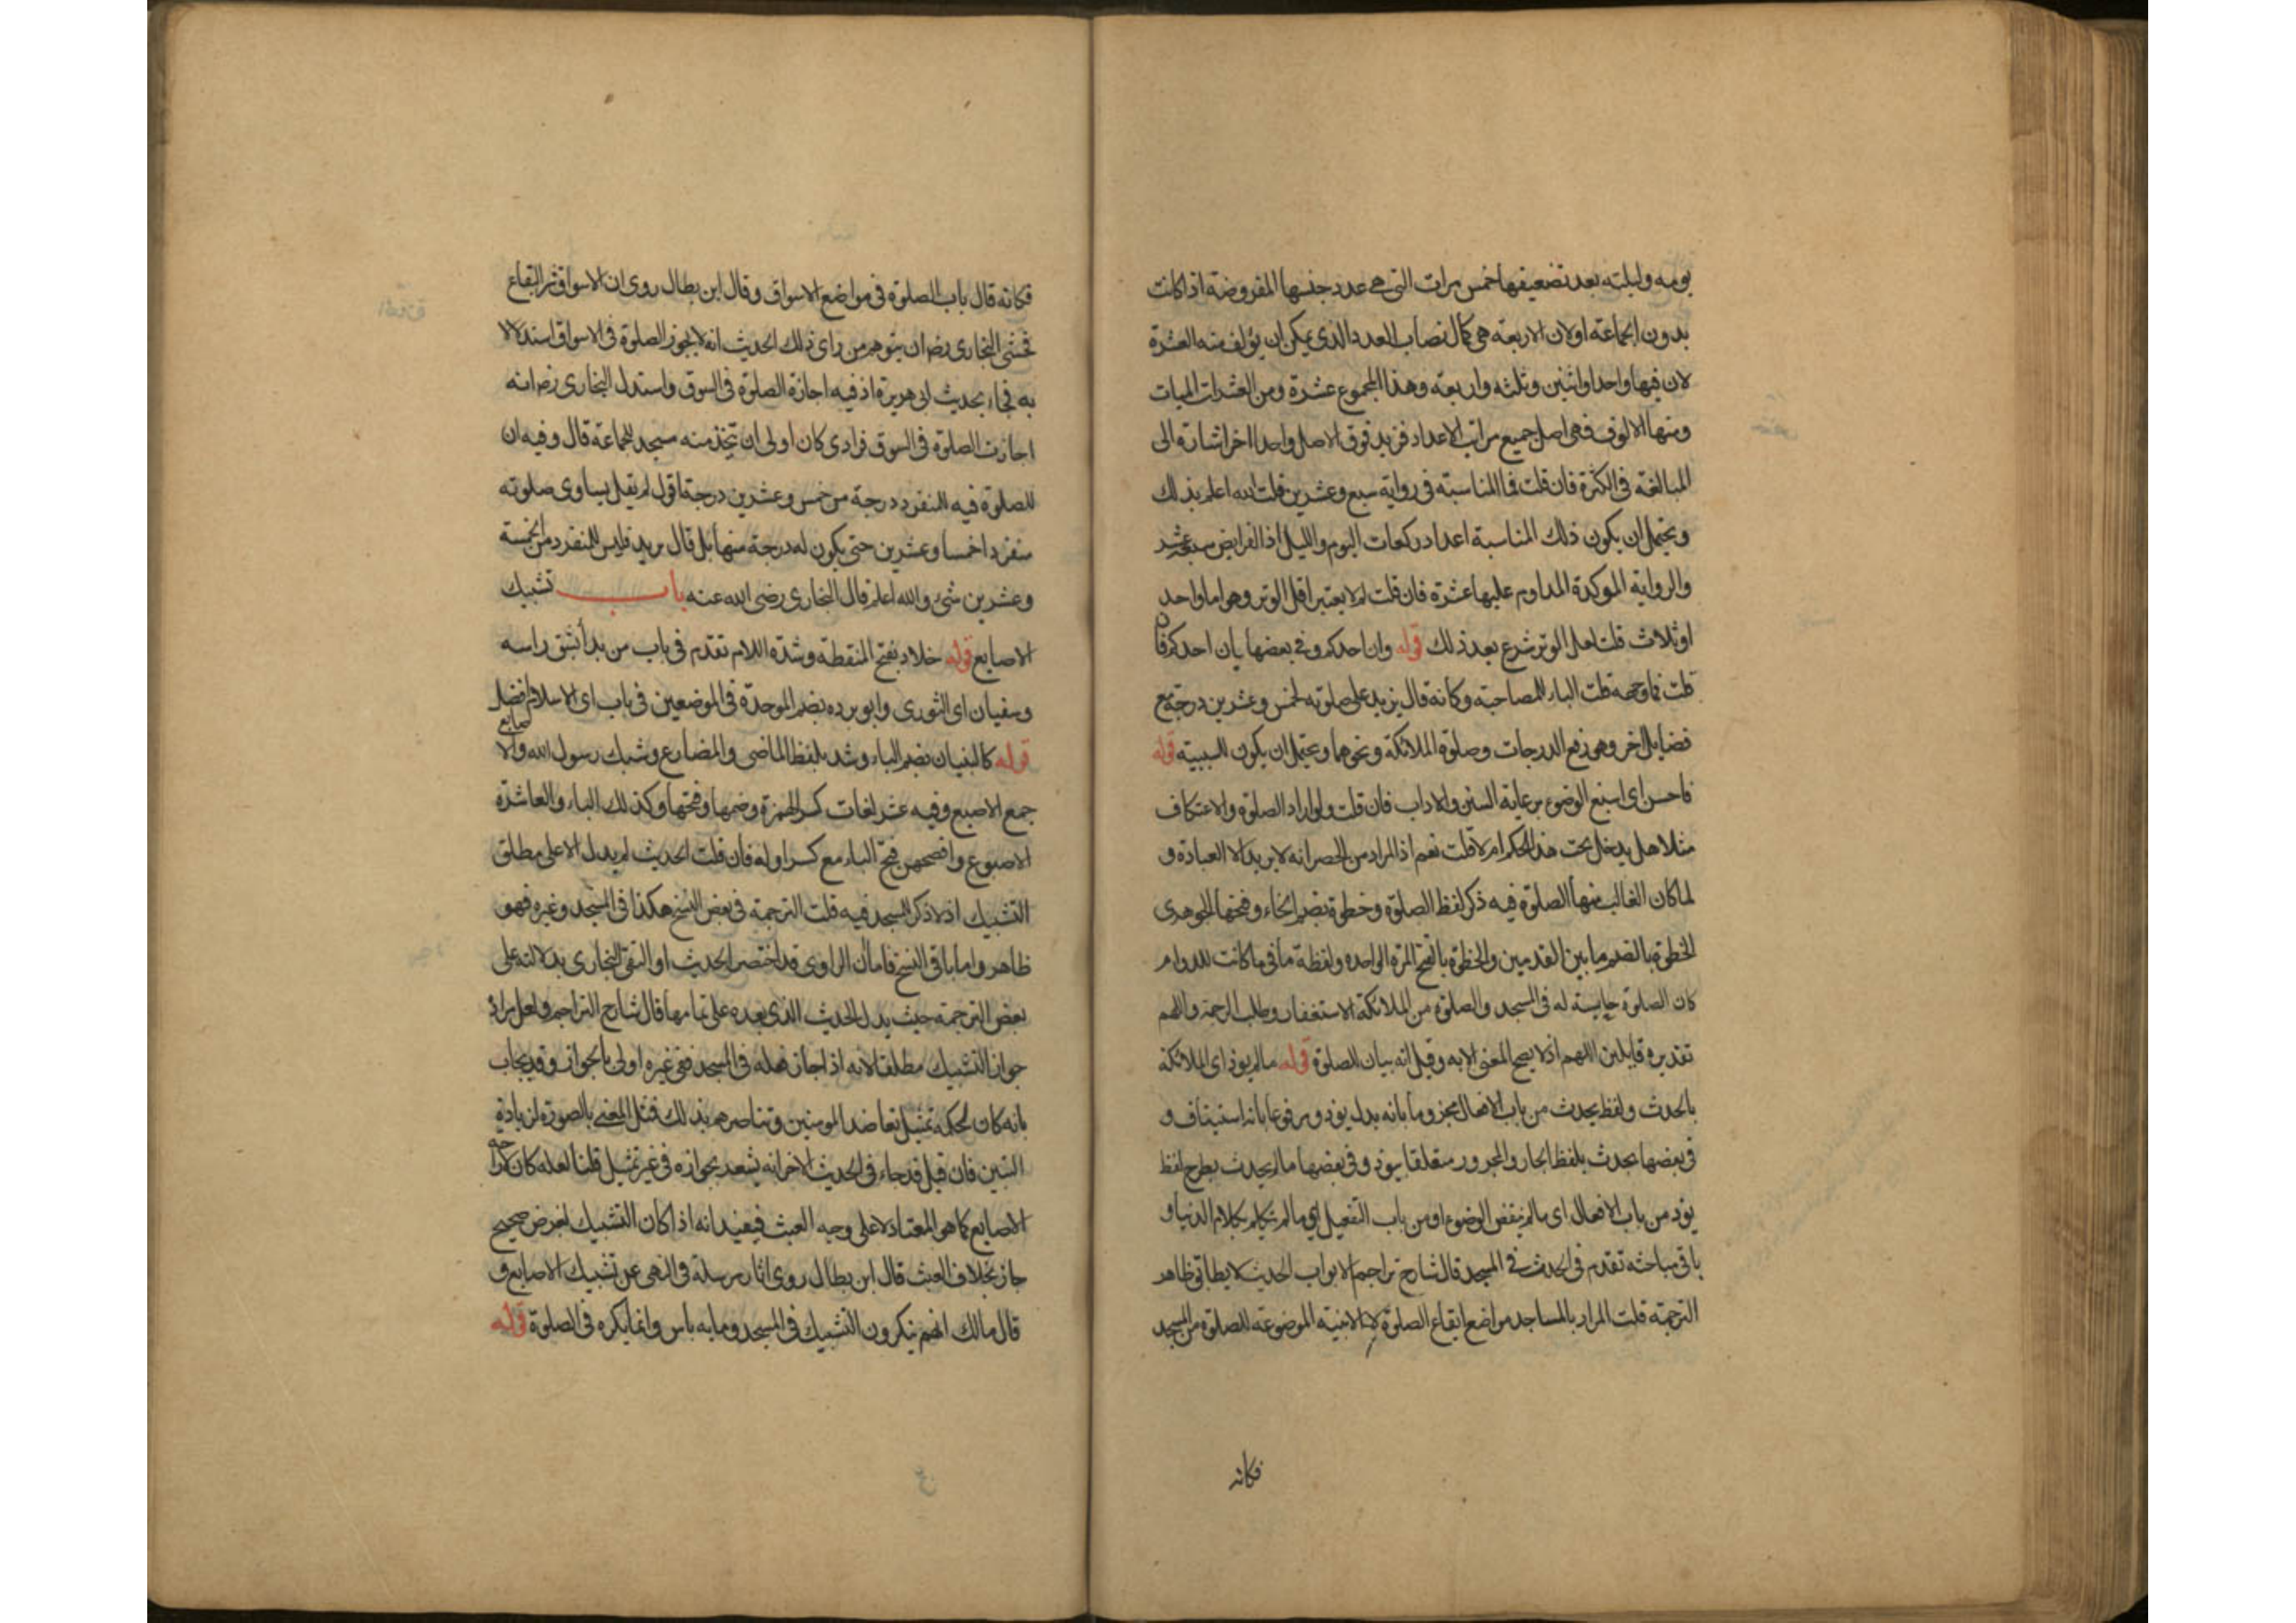 يومه وليلته بعد تضعيفها خمس مرات التي هي عدد جنسها المفروضة اذا كانت
بدون الجماعة او لان الاربعة هي كمال نصاب العدد الذي يمكن ان يؤلف منه العشرة
لان فيها واحدا واثنين وثلثه واربعة وهذا المجموع عشرة ومن العشرات الميات
ومنها الالوف فهي اصل جميع مراتب الاعداد فزيد فوق الاصل واحدا اخر اشارة الى
المبالغة في الكثرة فان قلت فما المناسبة في رواية سبع وعشرين قلت الله اعلم بذلك
ويحتمل ان يكون ذلك المناسبة اعداد ركعات اليوم والليل اذ الفرايض سبعة عشر
والرواتبة الموكدة المداوم عليها عشرة فان قلت لم لا يعتبر اقل الوتر وهو اما واحد
او ثلاث قلت لعل الوتر شرع بعد ذلك قوله وان احدكم وفي بعضها بان احدكم فان
قلت فما وجهه قلت الباء للمصاحبة وكانه قال يزيد على صلوته لخمس وعشرين درجة مع
فضايل اخر وهو رفع الدرجات وصلوة الملائكة ونحوهما ويحتمل ان يكون للسببية قوله
فاحسن اي اسبغ الوضوء برعاية السنن والاداب فان قلت ولو اراد الصلوة والاعتكاف
مثلا هل يدخل تحت هذا الحكم ام لا قلت نعم اذ المراد من الحصر انه لا يريد الا العبادة و
لما كان الغالب منها الصلوة فيه ذكر لفظ الصلوة وخطوة بضم الخاء وفتحها الجوهري
الخطوة بالضم ما بين القدمين والخطوة بالفتح المرة الواحدة ولفظة ما في ما كانت للدوام
كان الصلوة حابسة له في المسجد والصلوة من الملائكة الاستغفار وطلب الرحمة واللهم
تقديره قايلين اللهم اذ لا يصح المعنى الا به وقيل انه بيان للصلوة قوله ما لم يوذ اي الملائكة
بالحدث ولفظ يحدث من باب الافعال مجزوما بانه بدل يوذ ومرفوعا بانه استيناف و
في بعضها بحدث بلفظ الجار والمجرور متعلقا بيوذ وفي بعضها ما لم يحدث بطرح لفظ
يوذ من باب الافعال اي ما لم ينقض الوضوء او من باب التفعيل اي ما لم يتكلم بكلام الدنيا و
باقي مباحثه تقدم في الحدث في المسجد قال شارح تراجم الابواب الحديث لا يطابق ظاهر
الترجمة قلت المراد بالمساجد مواضع ايقاع الصلوة لا الابنية الموضوعة للصلوة من المسجد
فكانه
فكانه قال باب الصلوة في مواضع الاسواق وقال ابن بطال روي ان الاسواق شر البقاع
فخشي البخاري رضه ان يتوهم من راى ذلك الحديث انه لا يجوز الصلوة في الاسواق استدلالا
به فجاء بحديث ابي هريرة اذ فيه اجازة الصلوة في السوق واستدل البخاري رضه انه
اجازت الصلوة في السوق فرادى كان اولى ان تتخذ منه مسجد للجماعة قال وفيه ان
للصلوة فيه للمنفرد درجة من خمس وعشرين درجة اقول لم يقل يساوي صلوته
منفردا خمسا وعشرين حتى يكون له درجة منها بل قال يزيد فليس للمنفرد من الخمسة
وعشرين شئ والله اعلم قال البخاري رضي الله عنه باب تشبيك
الاصابع قوله خلاد بفتح المنقطة وشدة اللام تقدم في باب من بدأ بشق راسه
وسفيان اي الثوري وابو برده بضم الموحدة في الموضعين في باب اي الاسلام افضل
قوله كالبنيان بضم الباء وشد بلفظ الماضي والمضارع وشبك رسول الله والاصابع
جمع الاصبع وفيه عشر لغات كسر الهمزة وضمها وفتحها وكذلك الباء والعاشرة
الاصبوع وافصحهن فتح الباء مع كسر اوله فان قلت الحديث لم يدل الا على مطلق
التشبيك اذ لا ذكر للمسجد فيه قلت الترجمة في بعض النسخ هكذا في المسجد وغيره فهو
ظاهر واما باقي النسخ فاما ان الراوي قد اختصر الحديث او التقى البخاري بدلالته على
بعض الترجمة حيث يدل الحديث الذي بعده على تمامها قال شارح التراجم ولعل مراده
جواز التشبيك مطلقا لانه اذا جاز فعله في المسجد ففي غيره اولى بالجواز وقد يجاب
بانه كان لحكمة تمثيل تعاضد المومنين وتناصرهم بذلك فمثل المعنى بالصورة لزيادة
التبين فان قيل قد جاء في الحديث الاخر انه يشعر بجوازه في غير تمثيل قلنا لعله كان لاراحة
الاصابع كما هو المعتاد لا على وجه العبث فيفيد انه اذا كان التشبيك لغرض صحيح
جاز بخلاف العبث قال ابن بطال روي اثار مرسلة في النهي عن تشبيك الاصابع و
قال مالك انهم ينكرون التشبيك في المسجد وما به باس وانما يكره في الصلوة قوله